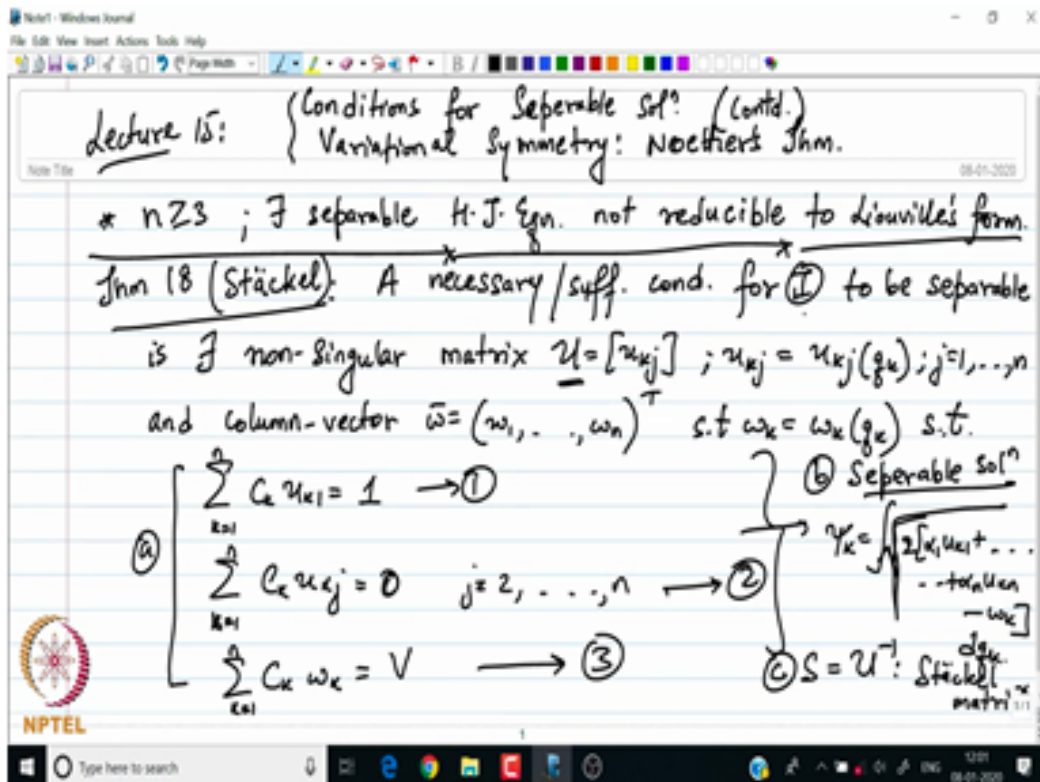 Note1 - Windows Journal
File Edit View Insert Actions Tools Help
Page Width
B I
Lecture 15: { Conditions for Seperable Solⁿ. (Contd.)
Variational Symmetry: Noether's Thm.
Note Title
08-01-2020
* n≥3 ; ∃ separable H.J. Eqn. not reducible to Liouville's form.
Thm 18 (Stäckel): A necessary/suff. cond. for Ⓘ to be separable
is ∃ non-singular matrix U = [u_kj] ; u_kj = u_kj(q_k) ; j=1,...,n
and column-vector w̄ = (w_1, . . , w_n)^T s.t w_k = w_k(q_k) s.t.
ⓐ [ ∑_{k=1}^{n} C_k u_k1 = 1 → ①
∑_{k=1}^{n} C_k u_kj = 0 j = 2, . . . , n → ②
∑_{k=1}^{n} C_k w_k = V → ③
ⓑ Seperable solⁿ
ψ_k = ∫ √2[α_1 u_k1 + ...
..+ α_n u_kn
- w_k]
dq_k
ⓒ S = U^{-1}: Stäckel
matrix
NPTEL
1
1/1
Type here to search
ENG
12:01